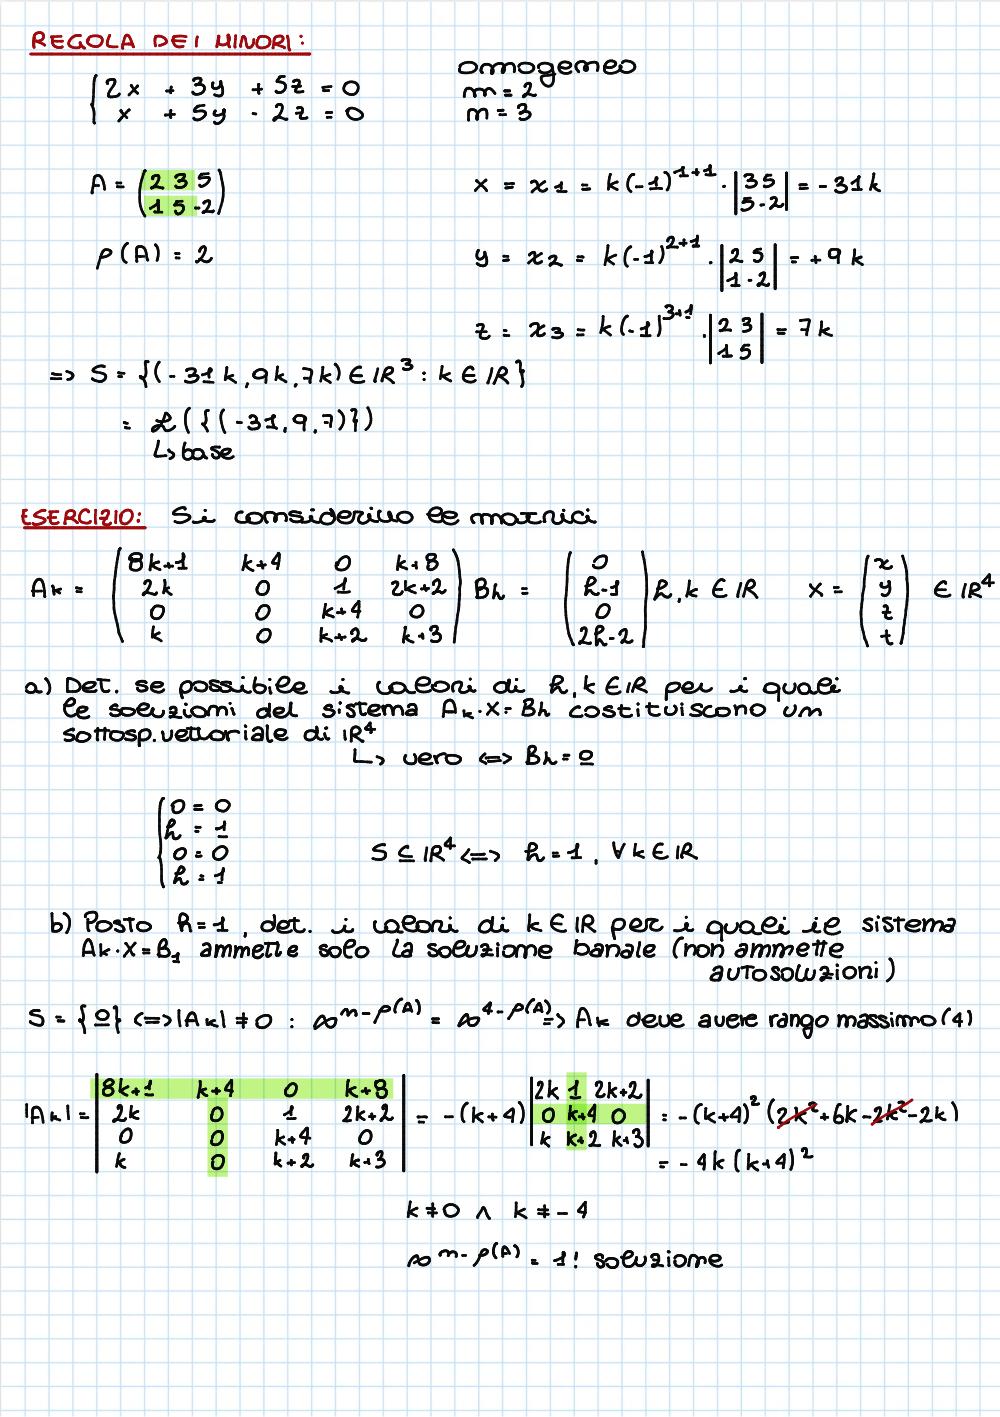 REGOLA DEI MINORI:
omogeneo
2x + 3y + 5z = 0
x + 5y - 2z = 0
m = 2
n = 3
A = (2 3 5
1 5 -2)
x = x1 = k(-1)^1+1 · |3 5
5 -2| = -31k
ρ(A) = 2
y = x2 = k(-1)^2+1 · |2 5
1 -2| = +9k
z = x3 = k(-1)^3+1 · |2 3
1 5| = 7k
=> S = {(-31k, 9k, 7k) ∈ IR³ : k ∈ IR}
= ℒ({(-31, 9, 7)})
↳ base
ESERCIZIO: Si considerino le matrici
Ak = (8k+1 k+4 0 k+8
2k 0 1 2k+2
0 0 k+4 0
k 0 k+2 k+3)
Bh = (0
h-1
0
2h-2) h, k ∈ IR
X = (x
y
z
t) ∈ IR⁴
a) Det. se possibile i valori di h, k ∈ IR per i quali
le soluzioni del sistema Ak·X = Bh costituiscono un
sottosp. vettoriale di IR⁴
↳ vero <=> Bh = 0
0 = 0
h = 1
0 = 0
h = 1
S ⊆ IR⁴ <=> h = 1, ∀ k ∈ IR
b) Posto h = 1, det. i valori di k ∈ IR per i quali il sistema
Ak·X = B1 ammette solo la soluzione banale (non ammette
autosoluzioni)
S = {0} <=> |Ak| ≠ 0 : ∞^n-ρ(A) = ∞^4-ρ(A) => Ak deve avere rango massimo (4)
|Ak| = |8k+1 k+4 0 k+8
2k 0 1 2k+2
0 0 k+4 0
k 0 k+2 k+3|
= -(k+4) |2k 1 2k+2
0 k+4 0
k k+2 k+3|
= -(k+4)² (2k²+6k-2k²-2k)
= -4k(k+4)²
k ≠ 0 ∧ k ≠ -4
∞^n-ρ(A) = 1! soluzione